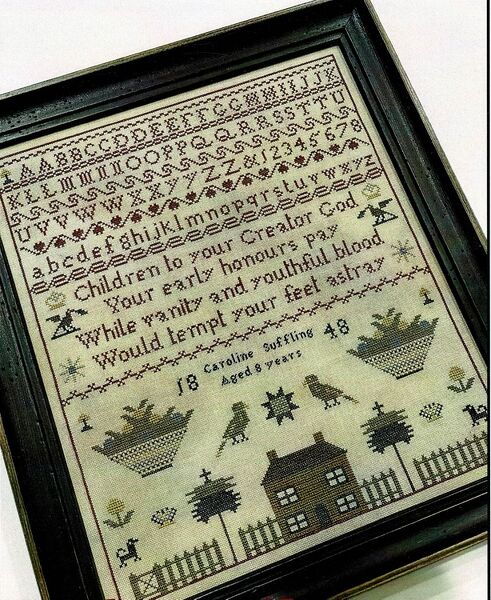 AABBCCDDEEFFGGHHIIJJK
KLLMMNNOOPPQQRRSSTTU
UVVWWXXYYZZ&12345678
abcdefghijklmnopqrstuvwxyz
Children to your Creator God
Your early honours pay
While vanity and youthful blood
Would tempt your feet astray
18 Caroline Suffling 48
Aged 8 years